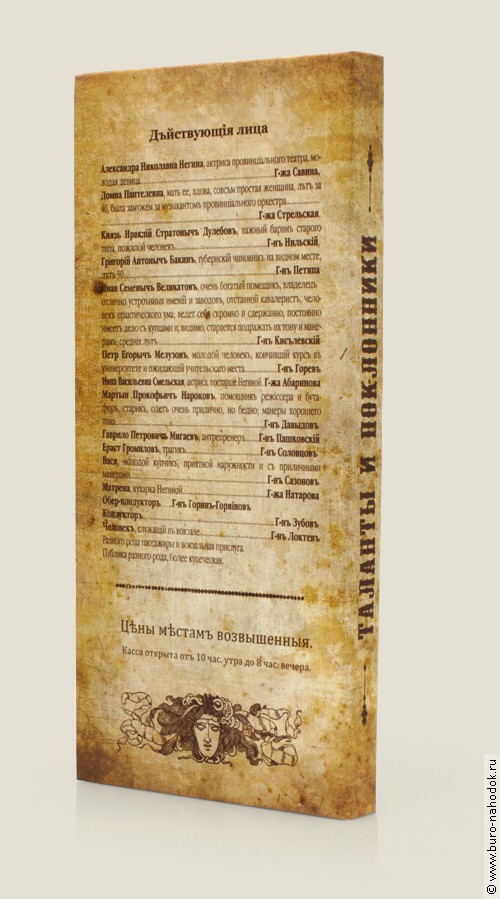 Дѣйствующія лица
Александра Николавна Негина, актриса провинціального театра, мо-
лодая девица Г-жа Савина,
Домна Пантелевна, мать ее, вдова, совсѣм простая женщина, лѣтъ за
40, была замужем за музыкантомъ провинціального оркестра
Г-жа Стрельская.
Князь Ираклій Стратонычъ Дулебовъ, важный баринъ старого
типа, пожилой человекъ Г-нъ Нильскій,
Григорій Антонычъ Бакинъ, губернскій чиновникъ на видном месте,
лѣтъ 30 Г-нъ Петипа
Иван Семенычъ Великатовъ, очень богатый помещикъ, владелецъ
отлично устроенных имений и заводов, отставной кавалеристъ, чело-
век практического ума, ведет себя скромно и сдержанно, постоянно
имеетъ дело съ купцами и, видимо, старается подражать их тону и мане-
рамъ; средних лѣтъ Г-нъ Киселевскій
Петр Егорычъ Мелузовъ, молодой человек, кончившій курсъ въ
университете и ожидающій учительскаго места Г-нъ Горевъ
Нина Васильевна Смельская, актриса, постарше Негиной Г-жа Абаринова
Мартын Прокофьичъ Нароковъ, помощникъ режіссера и бута-
форъ, старикъ, одетъ очень прилично, но бедно; манеры хорошего
тона Г-нъ Давыдовъ
Гаврило Петровичъ Мигаевъ, антрепренеръ Г-нъ Пашковскій
Ерастъ Громиловъ, трагикъ Г-нъ Соловцовъ
Вася, молодой купчикъ, приятной наружности и съ приличными
манерами Г-нъ Сазоновъ
Матрена, кухарка Негиной Г-жа Натарова
Обер-кондукторъ Г-нъ Горинъ-Горяіновъ
Кондукторъ Г-нъ Зубовъ
Человекъ, служащій въ вокзале Г-нъ Локтевъ
Разного рода пассажиры и вокзальная прислуга.
Публика разного рода, более купеческая.
Цѣны мѣстамъ возвышенныя.
Касса открыта отъ 10 час. утра до 8 час. вечера.
ТАЛАНТЫ И ПОКЛОННИКИ
© www.buro-nahodok.ru